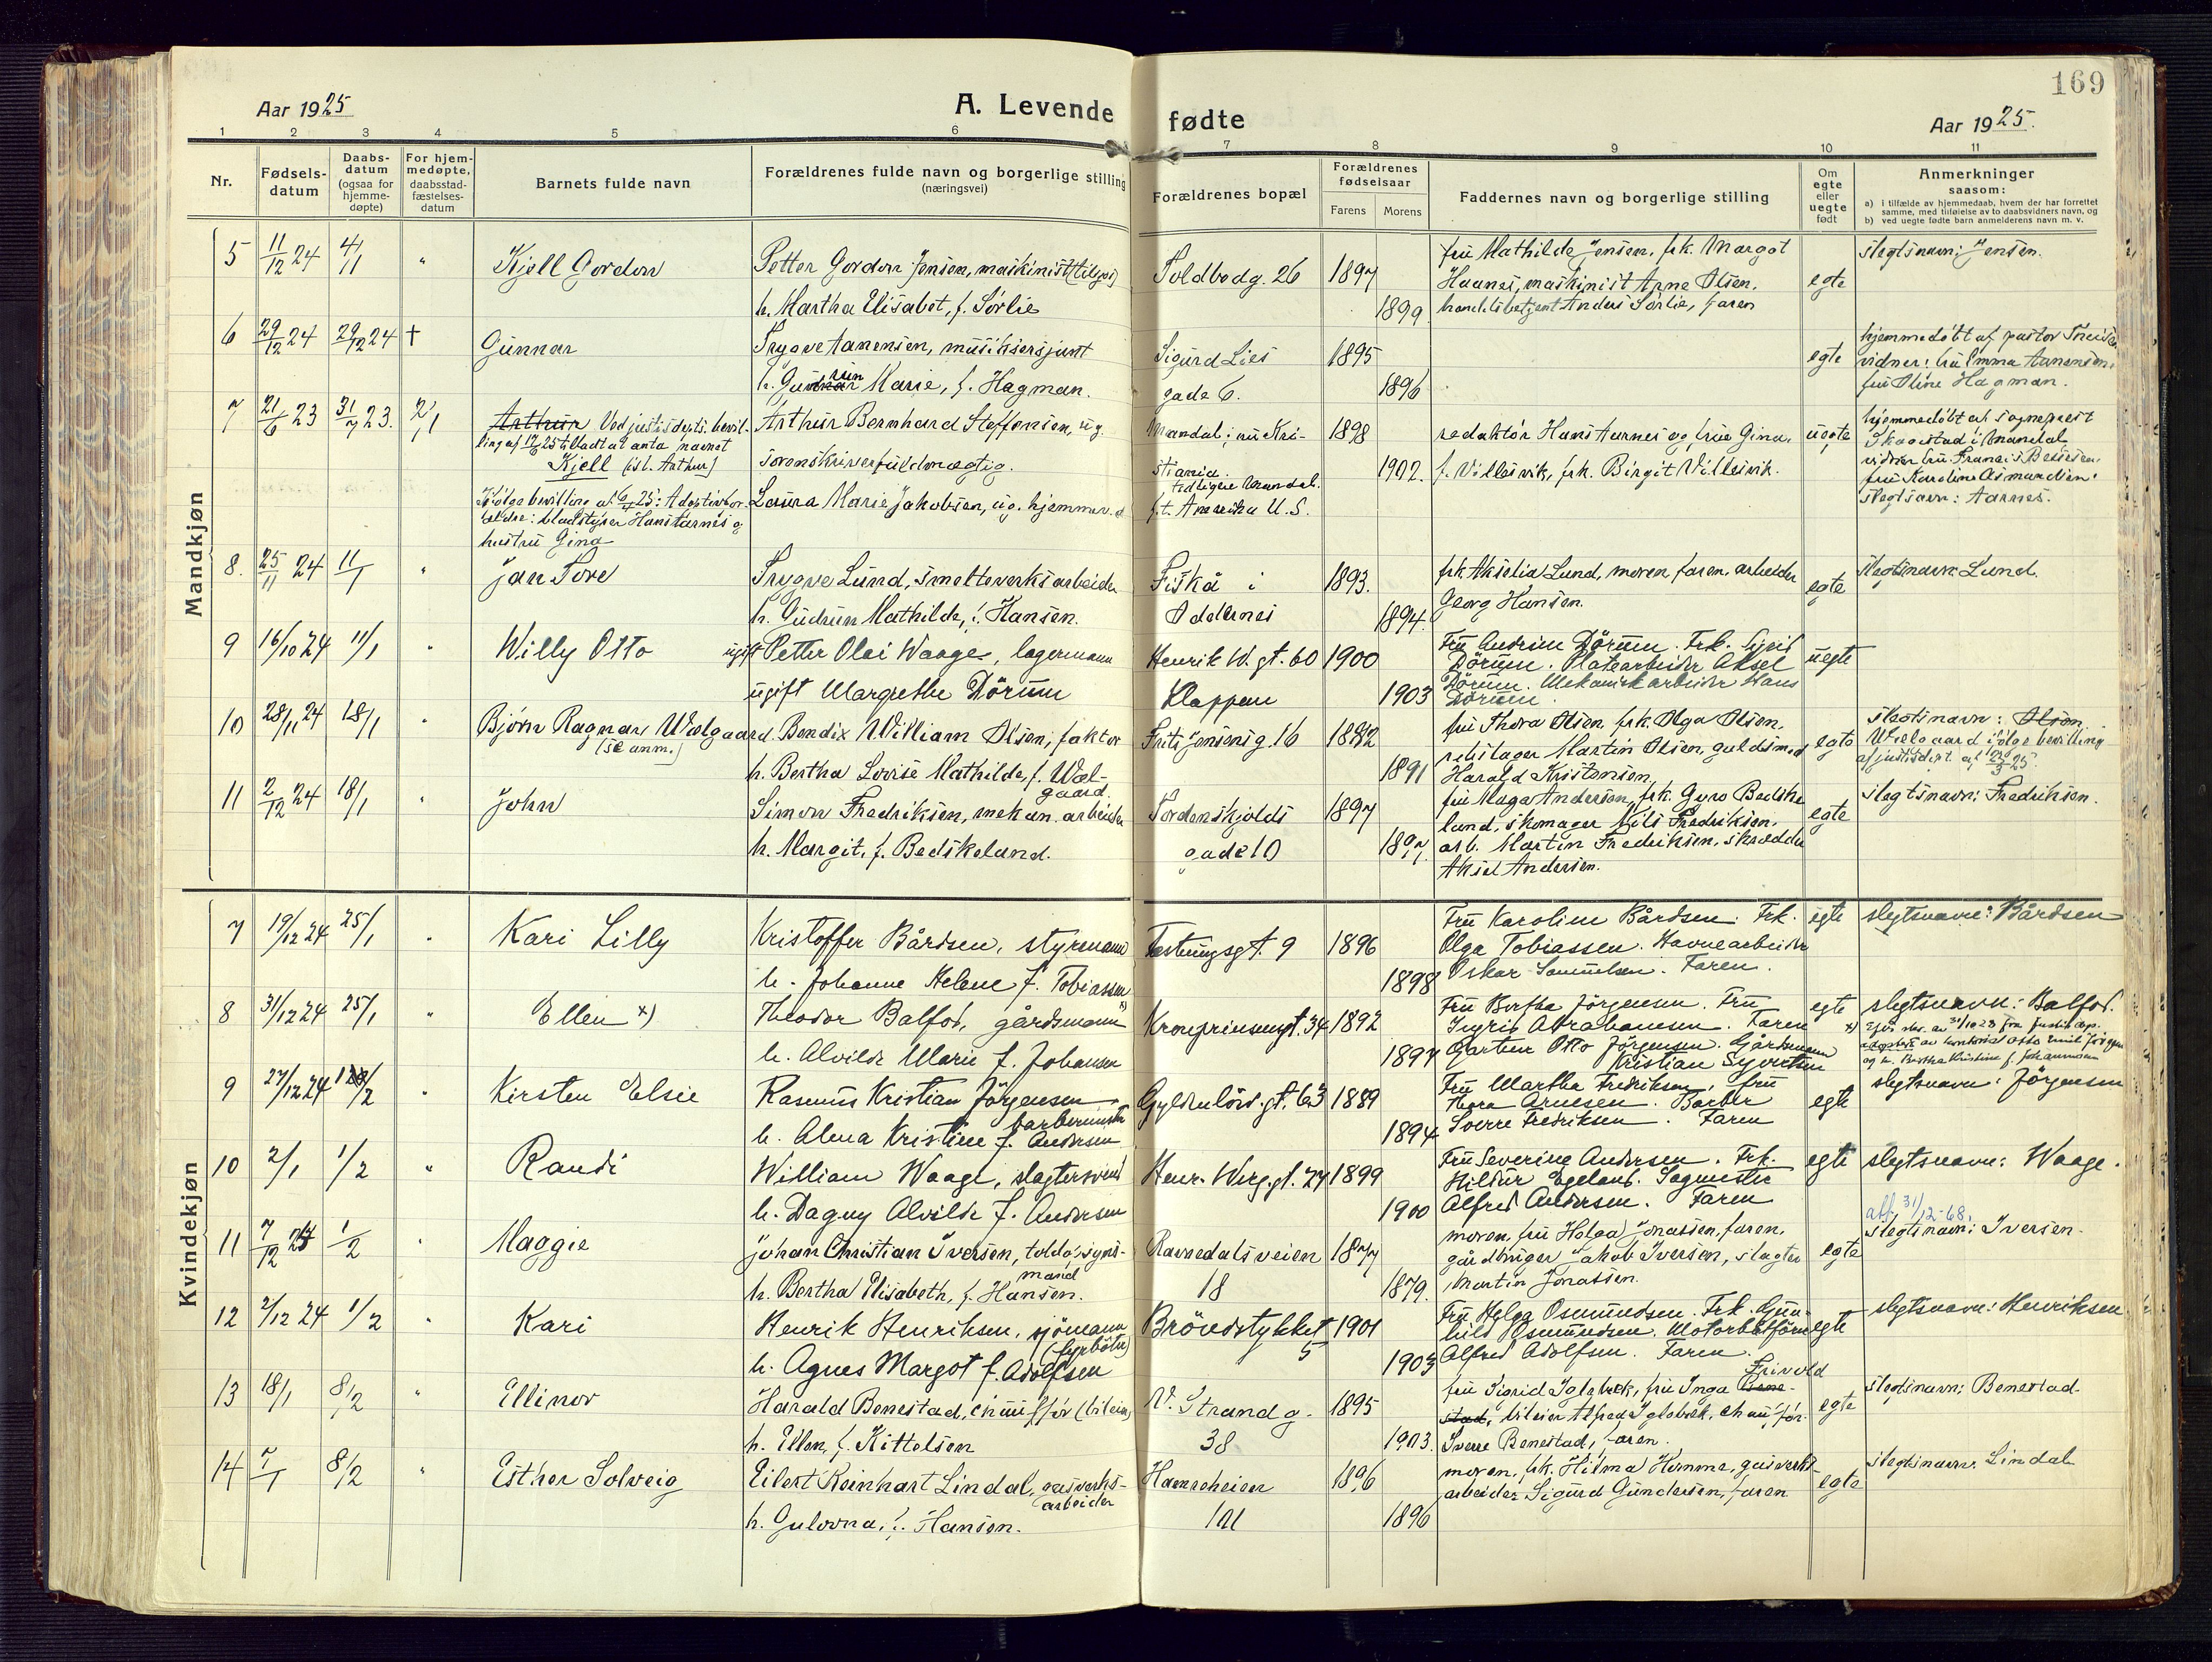 169
Aar 1925
A. Levende fødte
Aar 1925.
1 2 3 4 5 6 7 8 9 10 11
Nr.
Fødsels-datum
Daabs-datum (ogsaa for hjemme-døpte)
For hjem-medøpte, daabsstad-fæstelses-datum
Barnets fulde navn
Forældrenes fulde navn og borgerlige stilling (næringsvei)
Forældrenes bopæl
Forældrenes fødselsaar
Farens Morens
Faddernes navn og borgerlige stilling
Om egte eller uegte født
Anmerkninger saasom:
a) i tilfælde av hjemmedaab, hvem der har forrettet samme, med tilføielse av to daabsvidners navn, og
b) ved uegte fødte barn anmelderens navn m. v.
Mandkjøn
5 11/12 24 4/11 " Kjell Gordon
Petter Gordon Jensen, maskinist (tilsjøs)
h. Martha Elisabet, f. Sørlie
Toldbodg. 26 1897 1899
fru Mathilde Jensen, frk. Margot
Haanes, maskinist Arne Olsen,
handelsbetjent Anders Sørlie, faren
egte
slegtsnavn: Jensen.
6 29/12 24 29/12 24 † Gunnar
Trygve Aanensen, musiksersjant
h. Gudrun Marie, f. Hagman.
Sigurd Lies
gade 6. 1895 1896
egte
hjemmedøbt af pastor
vidner: fru Emma Aanensen,
fru Oline Hagman.
7 21/6 23 31/7 23. 2/1 Arthur Ved justisdepts. bevil-
ling af 17/6 25 tilladt at anta navnet
Kjell (ist. Arthur)
Ifølge bevilling af 6/4 25: Adoptivfor-
ældre: bladstyrer Hans Aarnes og
hustru Gina
Arthur Bernhard Steffensen, ug.
sorenskriverfuldmægtig.
Laura Marie Jakobsen, ug. hjemmev. d
Mandal; nu Kri-
stiania.
tidligere Mandal.
f.t. Amerika U.S.
1898 1902.
redaktør Hans Aarnes og frue Gina,
f. Villesvik, frk. Birgit Villesvik.
uegte
hjemmedøbt af sogneprest
Skagestad i Mandal
vidner fru Francis Bessesen,
fru Karoline Asmundsen.
slegtsnavn: Aarnes.
8. 25/11 24 11/1 " Jan Tore
Trygve Lund, smelteverksarbeider
h. Gudrun Mathilde, f. Hansen.
Fiskå i
Oddernes 1893. 1894.
frk. Akselia Lund, moren, faren, arbeider
Georg Hansen.
egte
slegtsnavn Lund.
9 16/10 24 11/1 " Willy Otto
ugift Petter Olai Waage, lagermann
ugift Margrethe Dörum
Henrik W. gt. 60
Klappen 1900 1903
Fru Andrine Dörum. Frk. Sigrid
Dörum. Platearbeider Aksel
Dörum. Mekanisk arbeider Hans
Dörum
uegte
10 28/11 24 18/1 " Bjørn Ragnar Wælgaard.
(se anm.)
Bendix William Olsen, faktor
h. Bertha Lovise Mathilde, f. Wæl-
gaard.
Fritz Jensens g. 16 1882 1891
fru Thora Olsen, frk. Olga Olsen,
rebslager Martin Olsen, guldsmed
Harald Kristensen.
egte
slegtsnavn: Olsen.
Wælgaard ifølge bevilling
af justisdept. af 25/3 25.
11 2/12 24 18/1 " John
Simon Fredriksen, mekan. arbeider
h. Margit, f. Bedskeland.
Tordenskjolds
gade 10 1897 1897.
fru Maga Andersen, frk. Gyro Bedske
land, skomager Nils Fredriksen,
arb. Martin Fredriksen, skrædder
Aksel Andersen.
egte
slegtsnavn: Fredriksen.
Kvindekjøn
7 19/12 24 25/1 " Kari Lilly
Kristoffer Bårdsen, styrmann
h. Johanne Helene f. Tobiassen
Festningsgt. 9 1896 1898
Fru Karoline Bårdsen. Frk.
Olga Tobiassen. Havnearbeider
Oskar Samuelsen. Faren.
egte
slegtsnavn: Bårdsen
8 31/12 24 25/1 " Ellen x)
Theodor Balfos, gårdsmann x)
h. Alvilde Marie f. Johansen
Kronprinsensgt. 34 1892 1897
Fru Bertha Jörgensen. Fru
Ingrid Abrahamsen. Faren
Gartner Otto Jörgensen. Gårdsmann
Kristian Syvertsen
egte
slegtsnavn: Balfos.
x) av 31/10 28 fra justisdep.
adoptert av kontorist Otto Emil Jörgen
og h. Bertha Kristine f. Johannesen
9 27/12 24 1/2 " Kirsten Elsie
Rasmus Kristian Jörgensen
barbermester
h. Alma Kristine f. Andersen
Gyldenlöves.gt. 63 1889 1894
Fru Martha Fredriksen, fru
Thora Arnesen. Barber
Sverre Fredriksen. Faren
egte
slegtsnavn: Jörgensen
10 2/1 1/2 " Randi
William Waage, slagtersvend
h. Dagny Alvilde f. Andersen
Henr. Werg.gt. 74 1899 1900
Fru Severine Andersen. Frk.
Hildur Egeland. Sagmester
Alfred Andersen. Faren
egte
slegtsnavn: Waage.
11 7/12 24 1/2 " Maggie
Johan Christian Iversen, toldopsyns-
mand
h. Bertha Elisabeth, f. Hansen.
Ravnedalsveien
18 1877 1879.
moren, fru Helga Jonassen, faren,
gårdbruger Jakob Iversen, slagter
Martin Jonassen.
egte
att. 31/12-68.
slegtsnavn: Iversen.
12 2/12 24 1/2 " Kari
Henrik Henriksen, sjömann
(fyrböter)
h. Agnes Margot f. Adolfsen
Bröndstykket
5 1901 1903
Fru Helga Osmundsen. Frk. Gun-
hild Osmundsen. Motorbåtförer
Alfred Adolfsen. Faren.
egte
slegtsnavn: Henriksen.
13 18/1 8/2 " Ellinor
Harald Benestad, chauffør (bileier)
h. Ellen, f. Kittelsen
V. Strandg.
38 1895 1903.
Frivold
fru Sigrid Iglebæk, fru Inga Bene-
stad, bileier Alfred Iglebæk, chauffør
Sverre Benestad, faren.
egte
slegtsnavn: Benestad
14 7/1 8/2 " Esther Solveig
Eilert Reinhart Lindal, gasverks-
arbeider
h. Gulovna, f. Hansen.
Hamreheien
101 1896 1896
moren, frk. Hilma Homme, gasverks-
arbeider Sigurd Gundersen, faren
egte
slegtsnavn Lindal